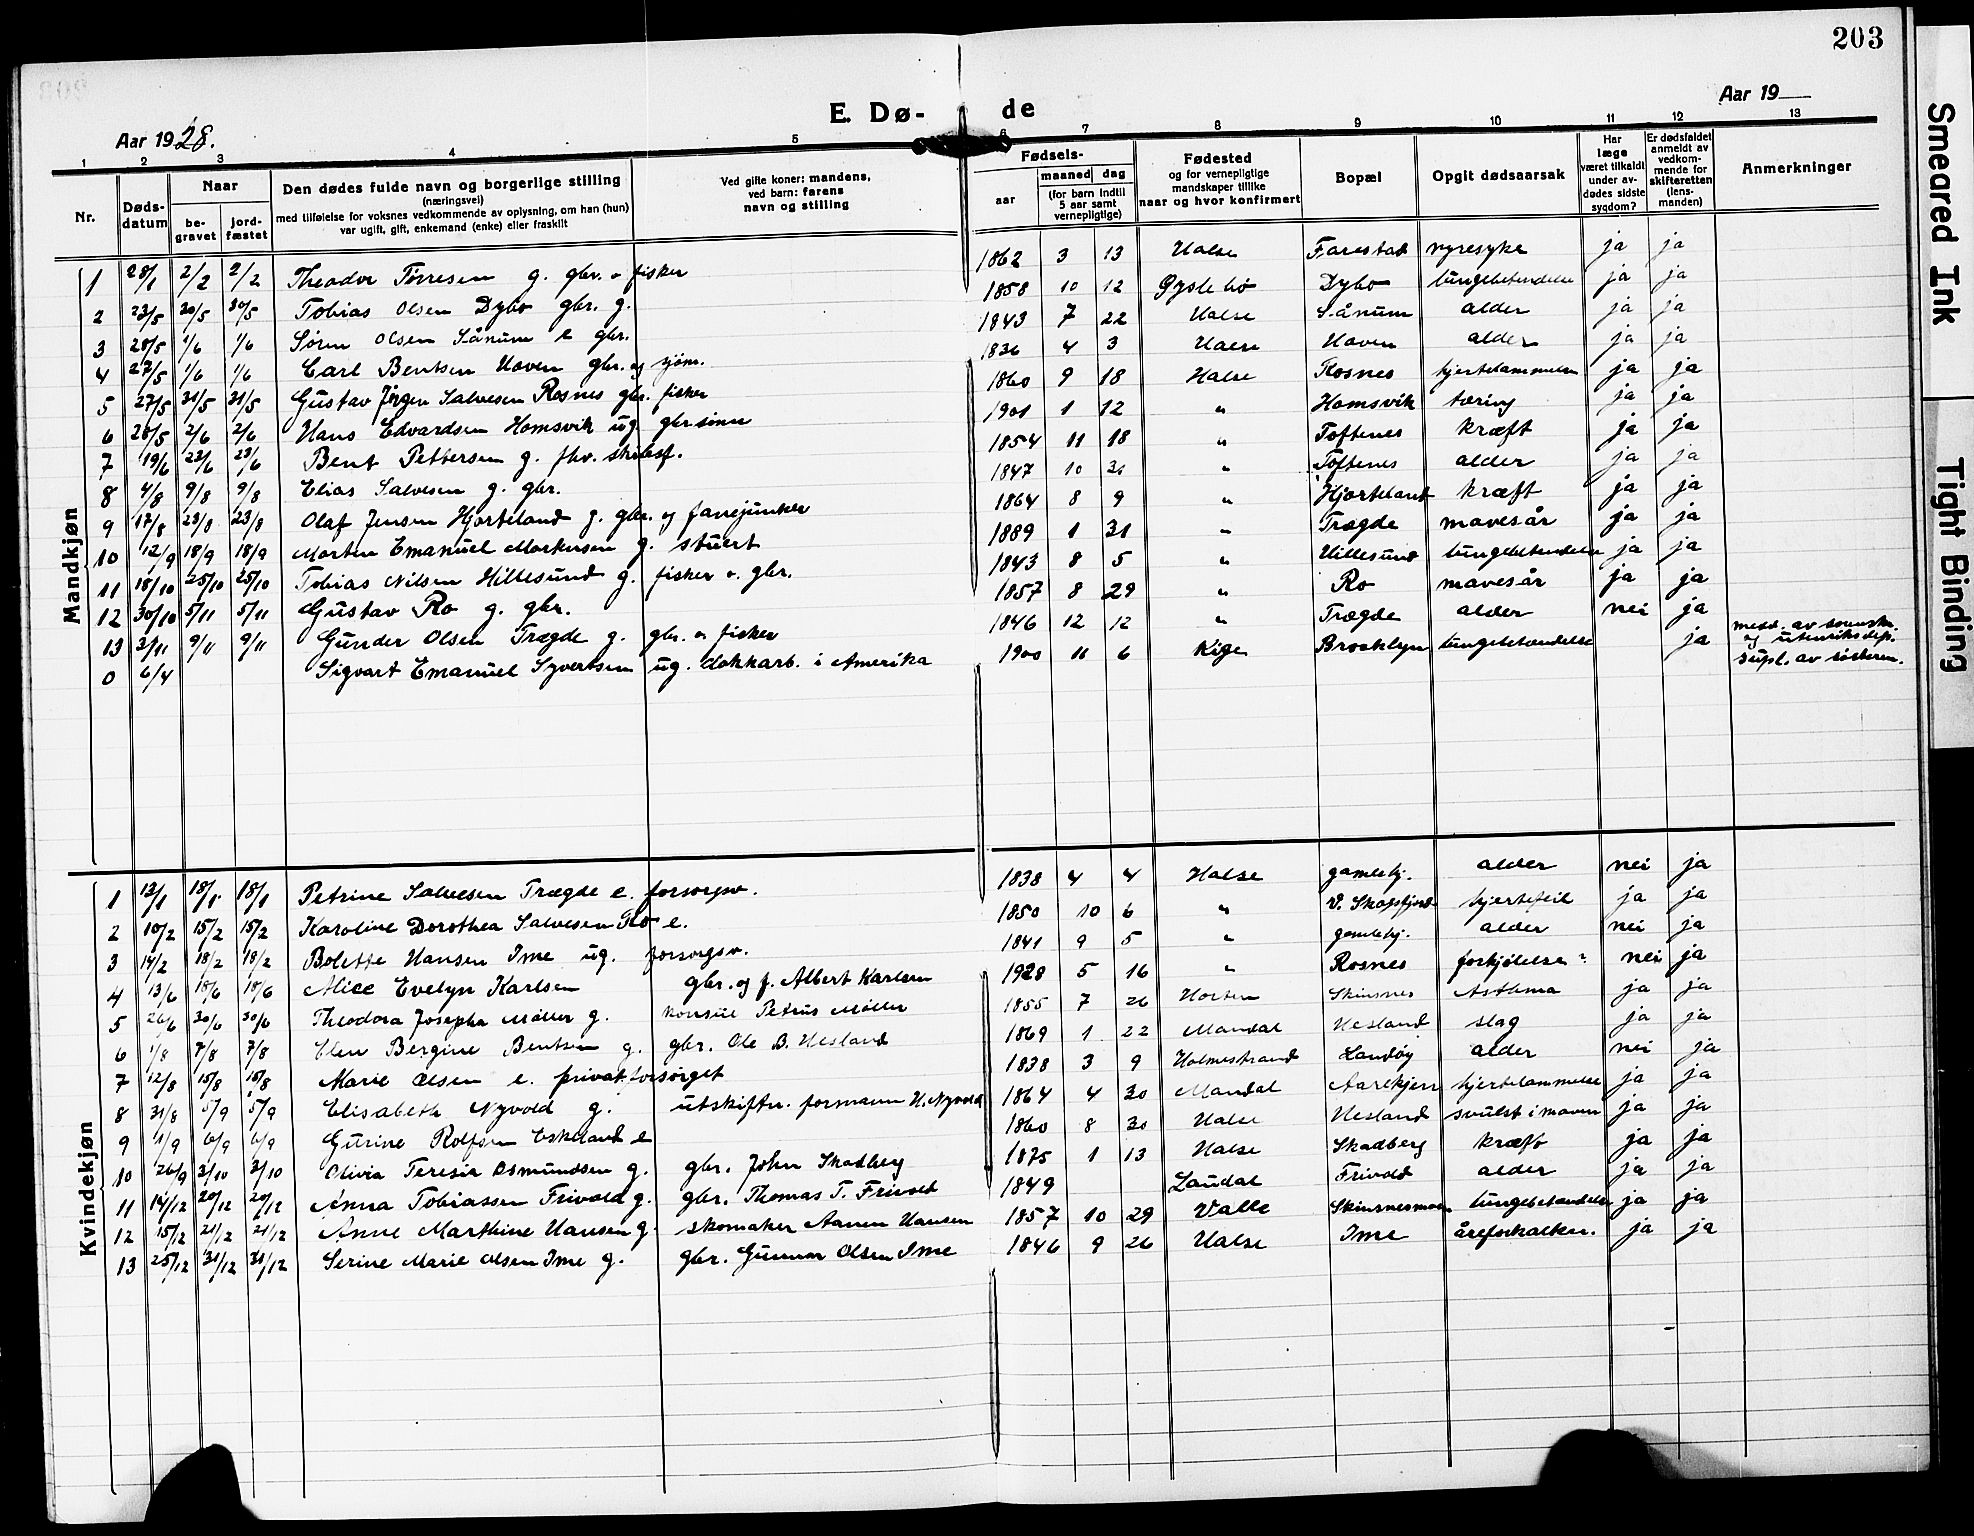 203
E. Dø- de
Aar 1928.
Aar 19
1 2 3 4 5 6 7 8 9 10 11 12 13
Nr. Døds-datum Naar be-gravet jord-fæstet Den dødes fulde navn og borgerlige stilling (næringsvei) med tilføielse for voksnes vedkommende av oplysning, om han (hun) var ugift, gift, enkemand (enke) eller fraskilt Ved gifte koner: mandens, ved barn: farens navn og stilling Fødsels- aar maaned dag (for barn indtil 5 aar samt vernepligtige) Fødested og for vernepligtige mandskaper tillike naar og hvor konfirmert Bopæl Opgit dødsaarsak Har læge været tilkaldt under av-dødes sidste sygdom? Er dødsfaldet anmeldt av vedkom-mende for skifteretten (lens-manden) Anmerkninger
Mandkjøn
1 28/1 2/2 2/2 Theodor Tørresen g. gbr. o fisker 1862 3 13 Halse Farestad nyresyke ja ja
2 23/5 30/5 30/5 Tobias Olsen Dybo gbr. g. 1858 10 12 Øyslebø Dybo lungebetendelse ja ja
3 28/5 1/6 1/6 Søren Olsen Sånum e gbr. 1843 7 22 Halse Sånum alder ja ja
4 27/5 1/6 1/6 Carl Bentsen Hoven gbr. og sjøm. 1836 4 3 Halse Hoven alder ja ja
5 27/5 31/5 31/5 Gustav Jørgen Salvesen Rosnes gbr. fisker 1860 9 18 Halse Rosnes hjertelammelse ja ja
6 28/5 2/6 2/6 Hans Edvardsen Homsvik ug. gbr sønn 1901 1 12 " Homsvik tæring ja ja
7 19/6 23/6 23/6 Bent Pettersen g. fhv. skibsf. 1854 11 18 " Toftenes kræft ja ja
8 4/8 9/8 9/8 Elias Salvesen g. gbr. 1847 10 31 " Toftenes alder ja ja
9 17/8 23/8 23/8 Olaf Jensen Hjorteland g. gbr. og fanejunker 1864 8 9 " Hjorteland kræft ja ja
10 12/9 18/9 18/9 Morten Emanuel Mortensen g. stuert 1889 1 31 " Trægde mavesår ja ja
11 18/10 25/10 25/10 Tobias Nilsen Hillesund g. fisker o. gbr. 1843 8 5 " Hillesund lungebetendelse ja ja
12 30/10 5/11 5/11 Gustav Ro g. gbr. 1857 8 29 " Ro mavesår ja ja
13 3/11 9/11 9/11 Gunder Olsen Trægde g. gbr. o fisker 1846 12 12 " Trægde alder nei ja
0 6/4 Sigvart Emanuel Syvertsen ug. dokkarb. i Amerika 1900 11 6 Kige Brooklyn lungebetændelse ja medd. av
og utenriksdep.
supl. av søsteren.
Kvindekjøn
1 13/1 18/1 18/1 Petrine Salvesen Trægde e. forsorgsv. 1838 4 4 Halse gamlehj. alder nei ja
2 10/2 15/2 15/2 Karoline Dorothea Salvesen Ro e. 1850 10 6 " V. Skogsfjord hjertefeil ja ja
3 14/2 18/2 18/2 Bolette Hansen Ime ug. forsorgsv. 1841 9 5 " gamlehj. alder nei ja
4 13/6 18/6 18/6 Alice Evelyn Karlsen gbr. og f. Albert Karlsen 1928 5 16 " Rosnes forkjølelse? nei ja
5 26/6 30/6 30/6 Theodora Josepha Møller g. konsul Petrus Møller 1855 7 26 Horten Skinsnes Asthma ja ja
6 1/8 7/8 7/8 Elen Bergine Bentsen g. gbr. Ole B. Hesland 1869 1 22 Mandal Hesland slag ja ja
7 12/8 15/8 15/8 Marie Olsen e. privat forsørget 1838 3 9 Holmestrand Landøy alder nei ja
8 31/8 5/9 5/9 Elisabeth Nyvold g. utskiftn. formann H. Nyvold 1864 4 30 Mandal hjertelammelse ja ja
9 1/9 6/9 6/9 Gurine Rolfsen Eskeland e 1860 8 30 Halse Hesland svulst i maven ja ja
10 26/9 3/10 3/10 Olivia Teresia Osmundsen g. gbr. John Skadberg 1875 1 13 Halse Skadberg kræft ja ja
11 14/12 20/12 20/12 Anna Tobiassen Frivold g. gbr. Thomas T. Frivold 1849 Laudal Frivold alder ja ja
12 15/12 21/12 21/12 Anne Marthine Hansen g. skomaker Aanen Hansen 1857 10 29 Valle Skinsnesmoen lungebetendelse ja ja
13 25/12 31/12 31/12 Serine Marie Olsen Ime g. gbr. Gunnar Olsen Ime 1846 9 26 Halse Ime åreforkalkn. ja ja
Smeared Ink
Tight Binding